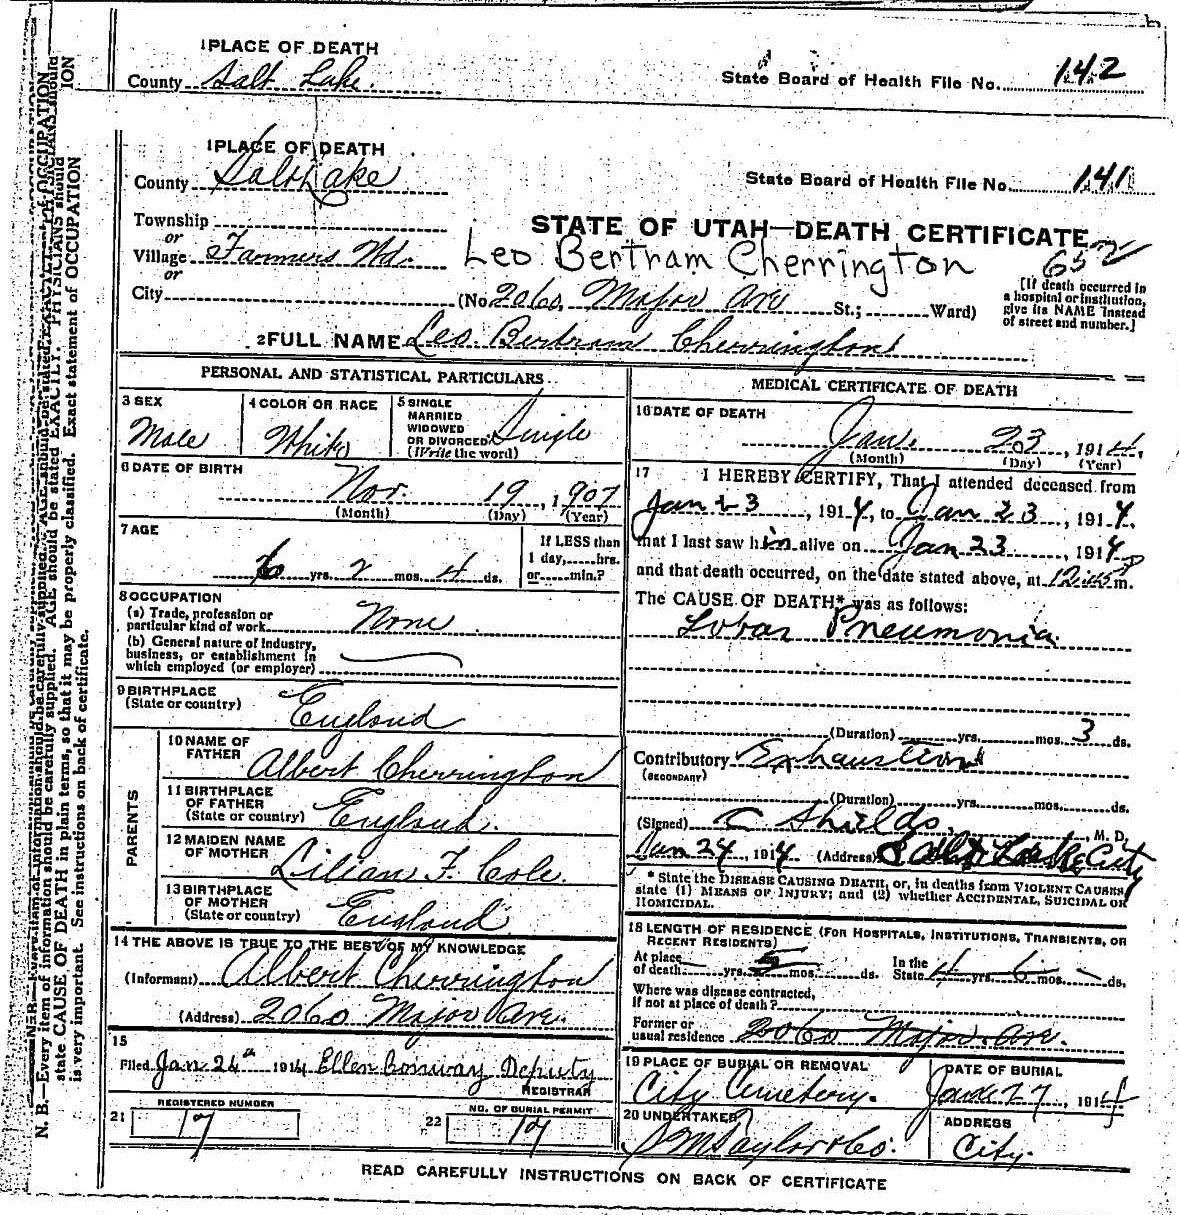 1 PLACE OF DEATH
County Salt Lake.
State Board of Health File No. 142
1 PLACE OF DEATH
County Salt Lake
State Board of Health File No. 141
Township
or
STATE OF UTAH—DEATH CERTIFICATE
Village Farmers Wd.
Leo Bertram Cherrington
652
or
[If death occurred in
a hospital or institution,
give its NAME instead
of street and number.]
City (No. 2060, Major Ave St.; Ward)
2 FULL NAME Leo. Bertram Cherrington
PERSONAL AND STATISTICAL PARTICULARS
3 SEX
Male
4 COLOR OR RACE
White
5 SINGLE
MARRIED
WIDOWED
OR DIVORCED
(Write the word)
Single
6 DATE OF BIRTH
Nov. 19, 1907
(Month) (Day) (Year)
7 AGE
6 yrs. 2 mos. 4 ds.
If LESS than
1 day, hrs.
or min.?
8 OCCUPATION
(a) Trade, profession or
particular kind of work None
(b) General nature of industry,
business, or establishment in
which employed (or employer)
9 BIRTHPLACE
(State or country)
England
PARENTS
10 NAME OF
FATHER
Albert Cherrington
11 BIRTHPLACE
OF FATHER
(State or country)
England.
12 MAIDEN NAME
OF MOTHER
Lilian F. Cole.
13 BIRTHPLACE
OF MOTHER
(State or country)
England
14 THE ABOVE IS TRUE TO THE BEST OF MY KNOWLEDGE
(Informant) Albert Cherrington
(Address) 2060 Major Ave.
15
Filed Jan 26 1914 Ellen Conway Deputy
REGISTRAR
21 REGISTERED NUMBER
17
22 NO. OF BURIAL PERMIT
17
MEDICAL CERTIFICATE OF DEATH
16 DATE OF DEATH
Jan. 23, 1914.
(Month) (Day) (Year)
17 I HEREBY CERTIFY, That I attended deceased from
Jan 23, 1914, to Jan 23, 1914,
that I last saw him alive on Jan 23, 1914
and that death occurred, on the date stated above, at m.
The CAUSE OF DEATH* was as follows:
Lobar Pneumonia
(Duration) yrs. mos. 3 ds.
Contributory Exhaustion
(SECONDARY)
(Duration) yrs. mos. ds.
(Signed) C Shields, M. D.
Jan 24, 1914 (Address) Salt Lake City
* State the DISEASE CAUSING DEATH, or, in deaths from VIOLENT CAUSES
state (1) MEANS OF INJURY; and (2) whether ACCIDENTAL, SUICIDAL OR
HOMICIDAL.
18 LENGTH OF RESIDENCE (FOR HOSPITALS, INSTITUTIONS, TRANSIENTS, OR
RECENT RESIDENTS)
At place
of death yrs. 5 mos. ds.
In the
State 4 yrs. 6 mos. - ds.
Where was disease contracted,
if not at place of death?
Former or
usual residence 2060 Major. Ave.
19 PLACE OF BURIAL OR REMOVAL
City Cemetery.
DATE OF BURIAL
Jan 27, 1914
20 UNDERTAKER
S M Taylor & Co.
ADDRESS
City.
READ CAREFULLY INSTRUCTIONS ON BACK OF CERTIFICATE
N. B.—Every item of information should be carefully supplied. AGE should be stated EXACTLY. PHYSICIANS should
state CAUSE OF DEATH in plain terms, so that it may be properly classified. Exact statement of OCCUPATION
is very important. See instructions on back of certificate.